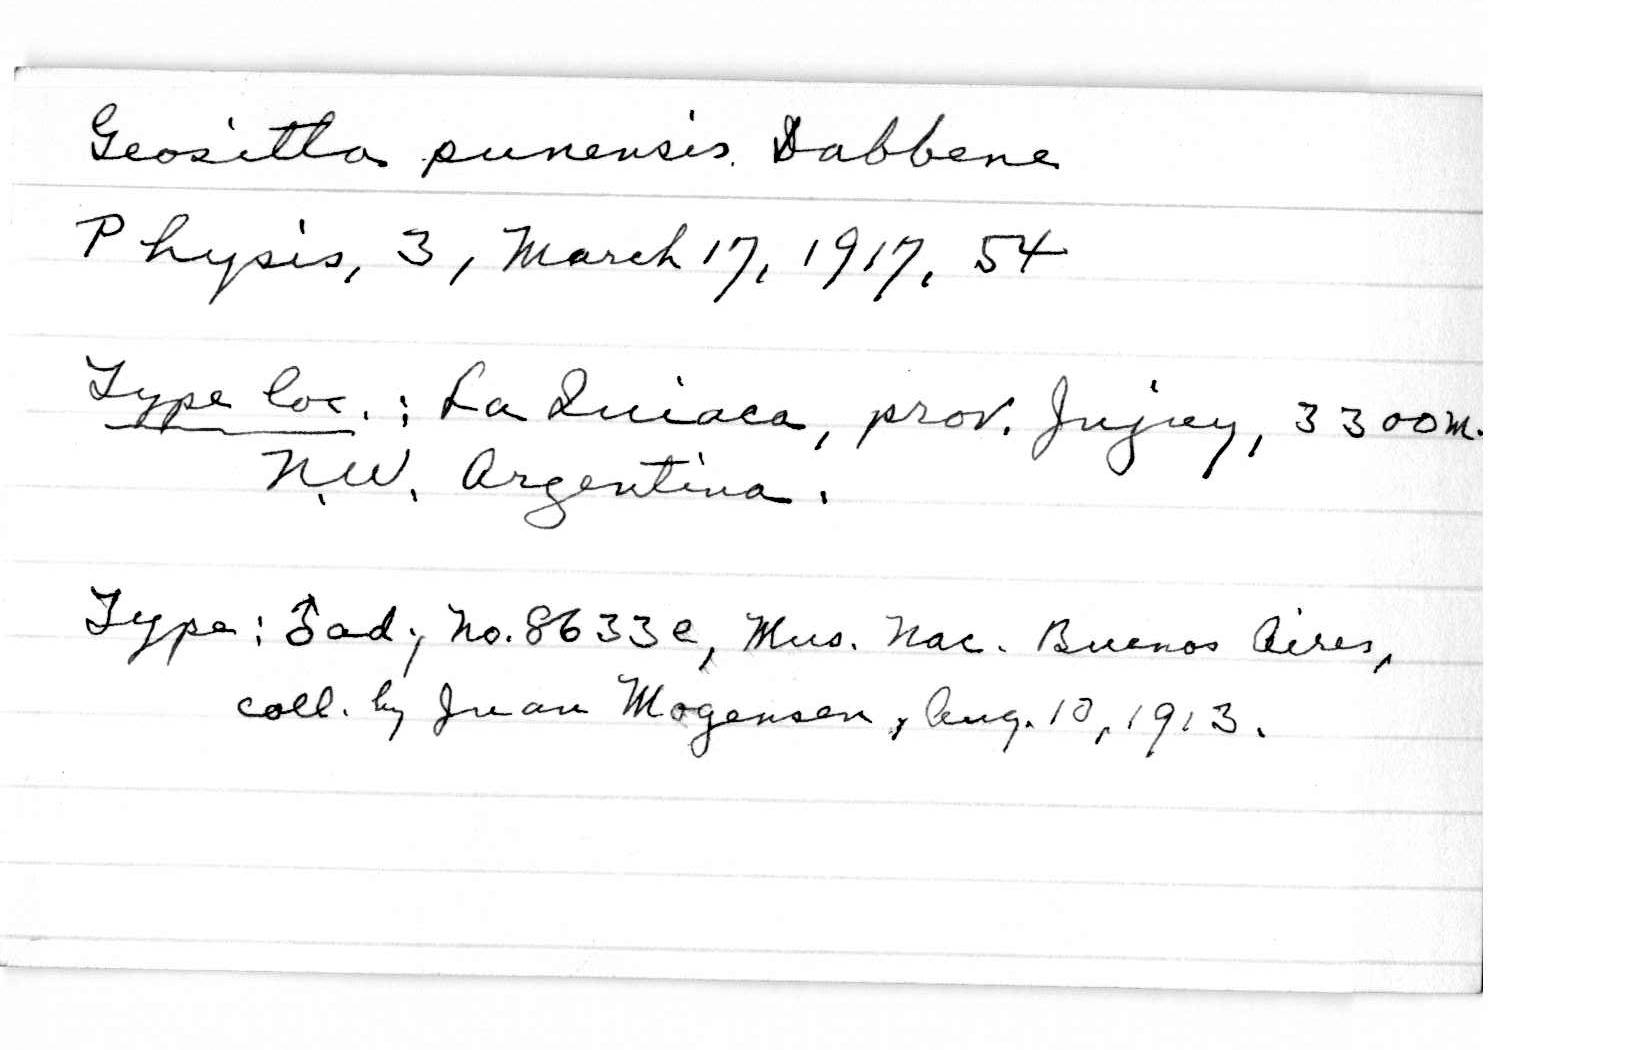 Geositta punensis. Dabbene
Physis, 3, March 17, 1917, 54
Type loc.: La Quiaca, prov. Jujuy, 3300m.
N.W. Argentina.
Type: ♂ ad; No. 8633e, Mus. Nac. Buenos Aires,
coll. by Juan Mogensen, Aug. 10, 1913.